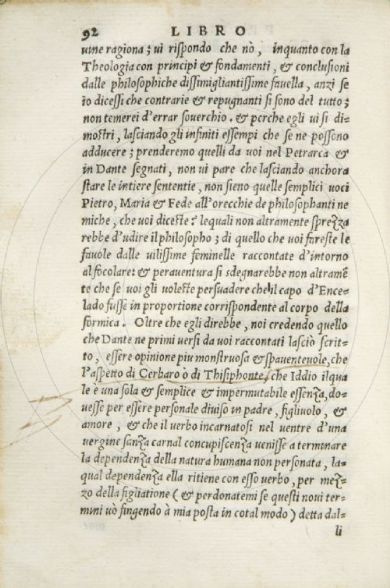 92 LIBRO
uine ragiona; ui rispondo che nò, inquanto con la
Theologia con principi & fondamenti, & conclusioni
dalle philosophiche dissimigliantissime fauella, anzi se
io dicessi che contrarie & repugnanti si sono del tutto;
non temerei d'errar souerchio. & perche egli ui si di=
mostri, lasciando gli infiniti essempi che se ne possono
adducere; prenderemo quelli da voi nel Petrarca &
in Dante segnati, non ui pare che lasciando anchora
stare le intiere sententie, non sieno quelle semplici uoci
Pietro, Maria & Fede all'orecchie de philosophanti ne
miche, che voi diceste? lequali non altramente sprezza
rebbe d'udire il philosopho; di quello che voi fareste le
fauole dalle uilissime feminelle raccontate d'intorno
al focolare: & perauentura si sdegnarebbe non altramē
te che se voi gli voleste persuadere chehl capo d'Ence=
lado fusse in proportione corrispondente al corpo della
formica. Oltre che egli direbbe, noi credendo quello
che Dante ne primi versi da voi raccontati lasciò scrit=
to, essere opinione piu monstruosa & spauenteuole, che
l'aspetto di Cerbaro ò di Thisiphonte, che Iddio ilqua
le è una sola & semplice & impermutabile essenza, do=
uesse per essere personale diuiso in padre, figliuolo, &
amore, & che il verbo incarnatosi nel ventre d'una
uergine sanza carnal concupiscenza uenisse a terminare
la dependenza della natura humana non personata, la=
qual dependenza ella ritiene con esso verbo, per mez=
zo della figliatione (& perdonatemi se questi noui ter=
mini uò fingendo à mia posta in cotal modo) detta dal=
li